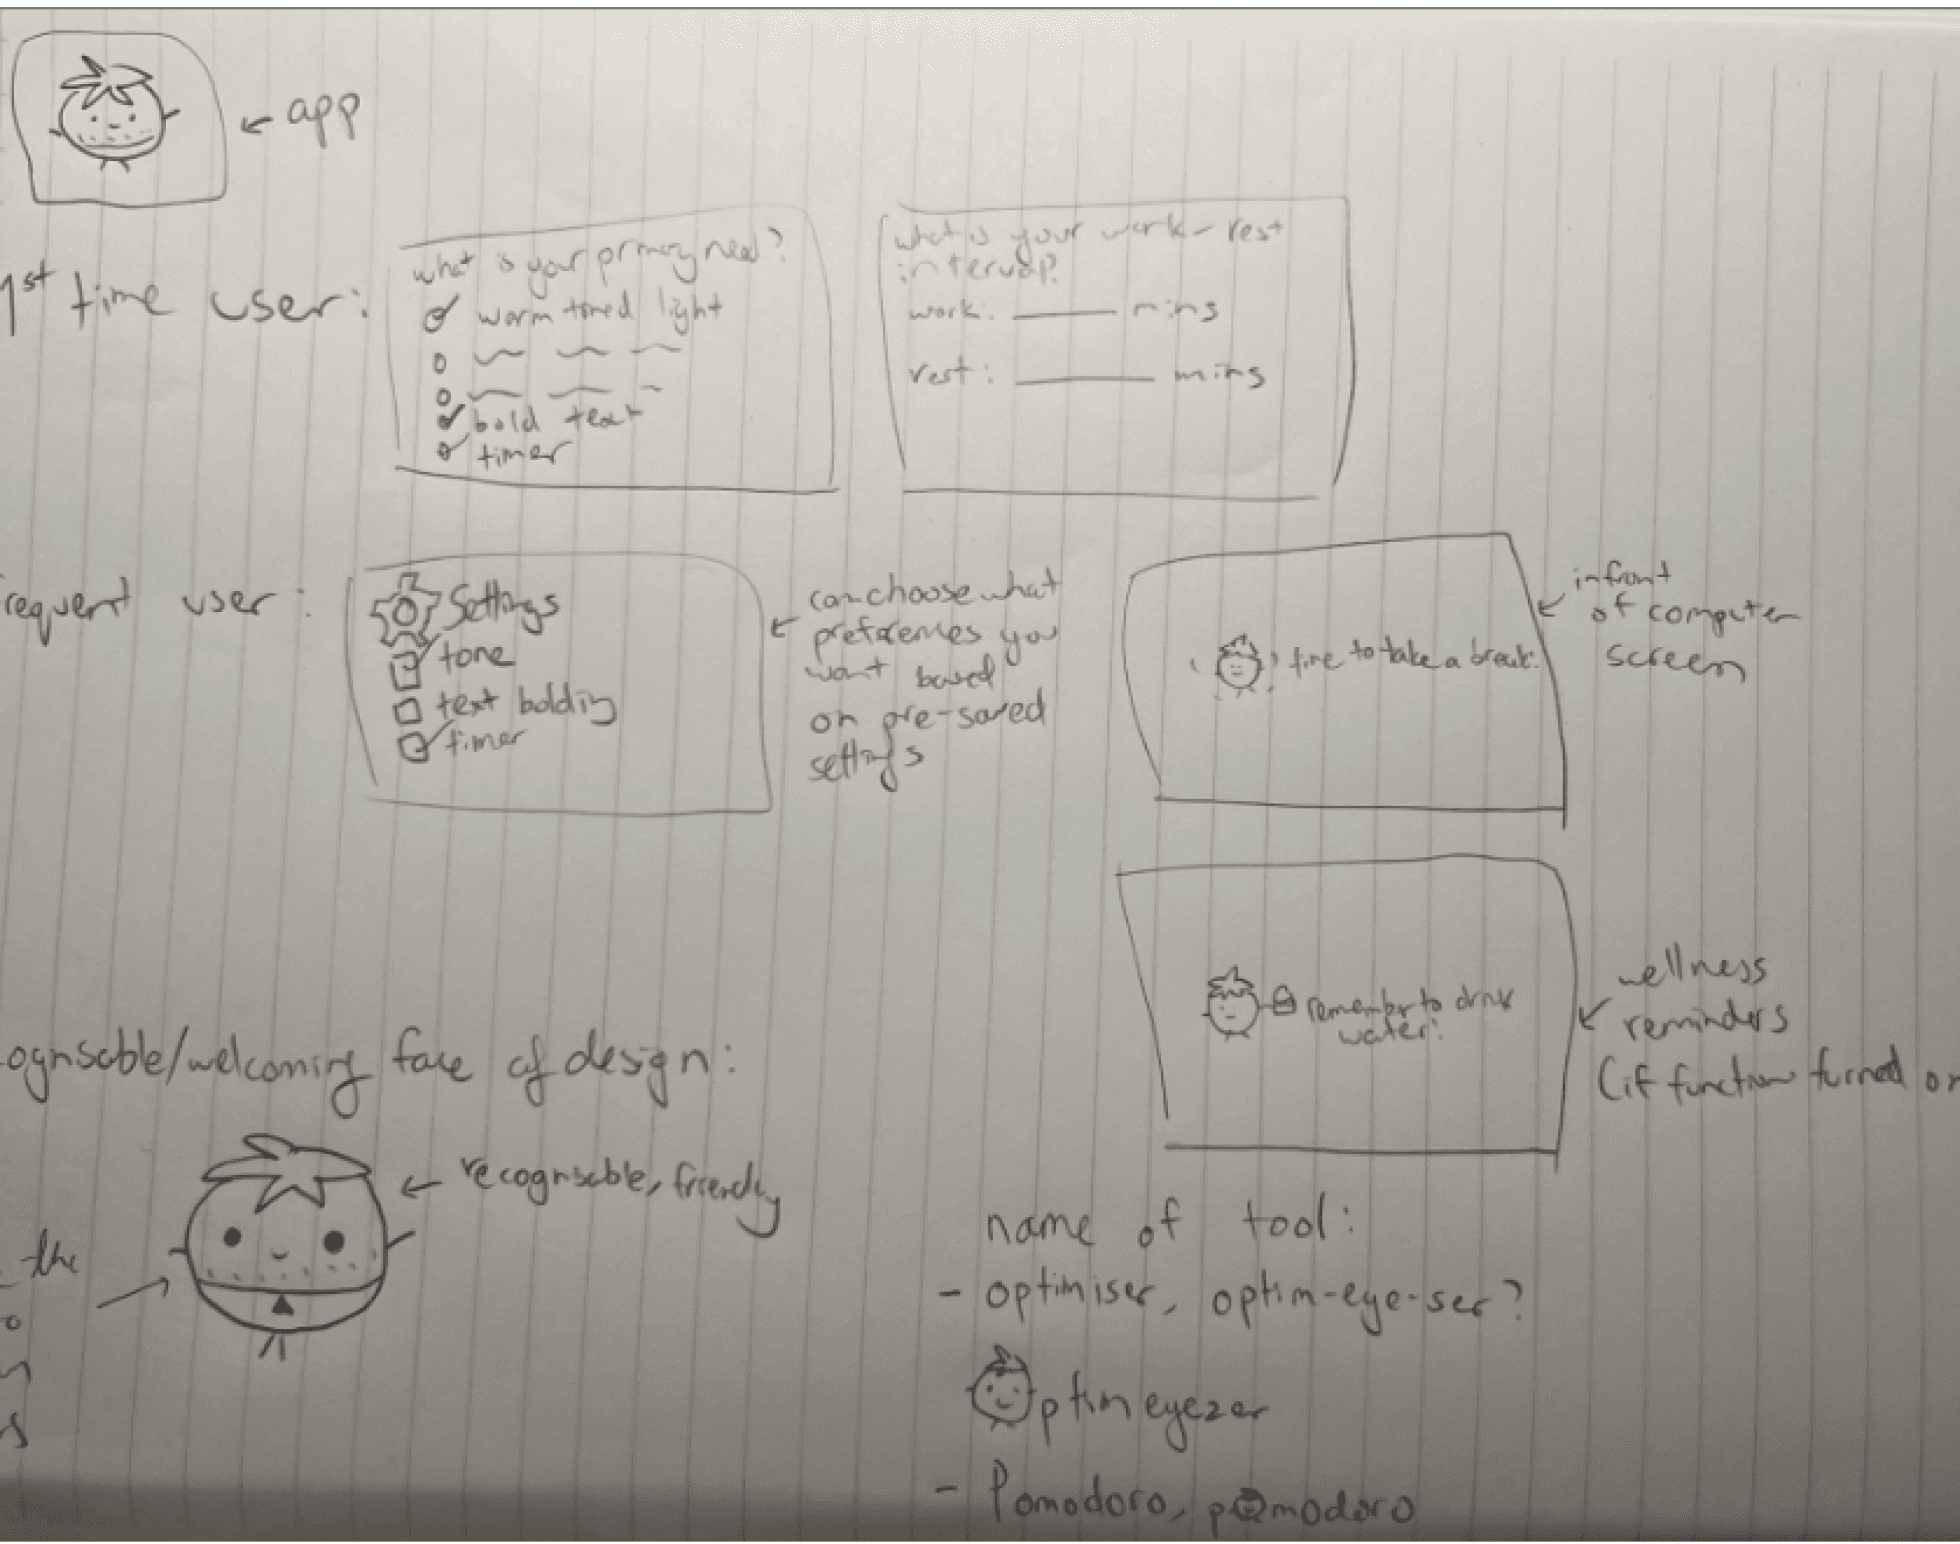 app
1st time user:
what is your primary need?
warm toned light
bold text
timer
what is your work-rest
interval?
work: ______ mins
rest: ______ mins
requent user:
Settings
tone
text bolding
timer
can choose what
preferences you
want based
on pre-saved
settings
time to take a break!
infront
of computer
screen
remember to drink
water!
wellness
reminders
(if function turned on
ognisable/welcoming face of design:
recognisable, friendly
the
name of tool:
- optimiser, optim-eye-ser?
Optimeyezer
- Pomodoro, pomodoro